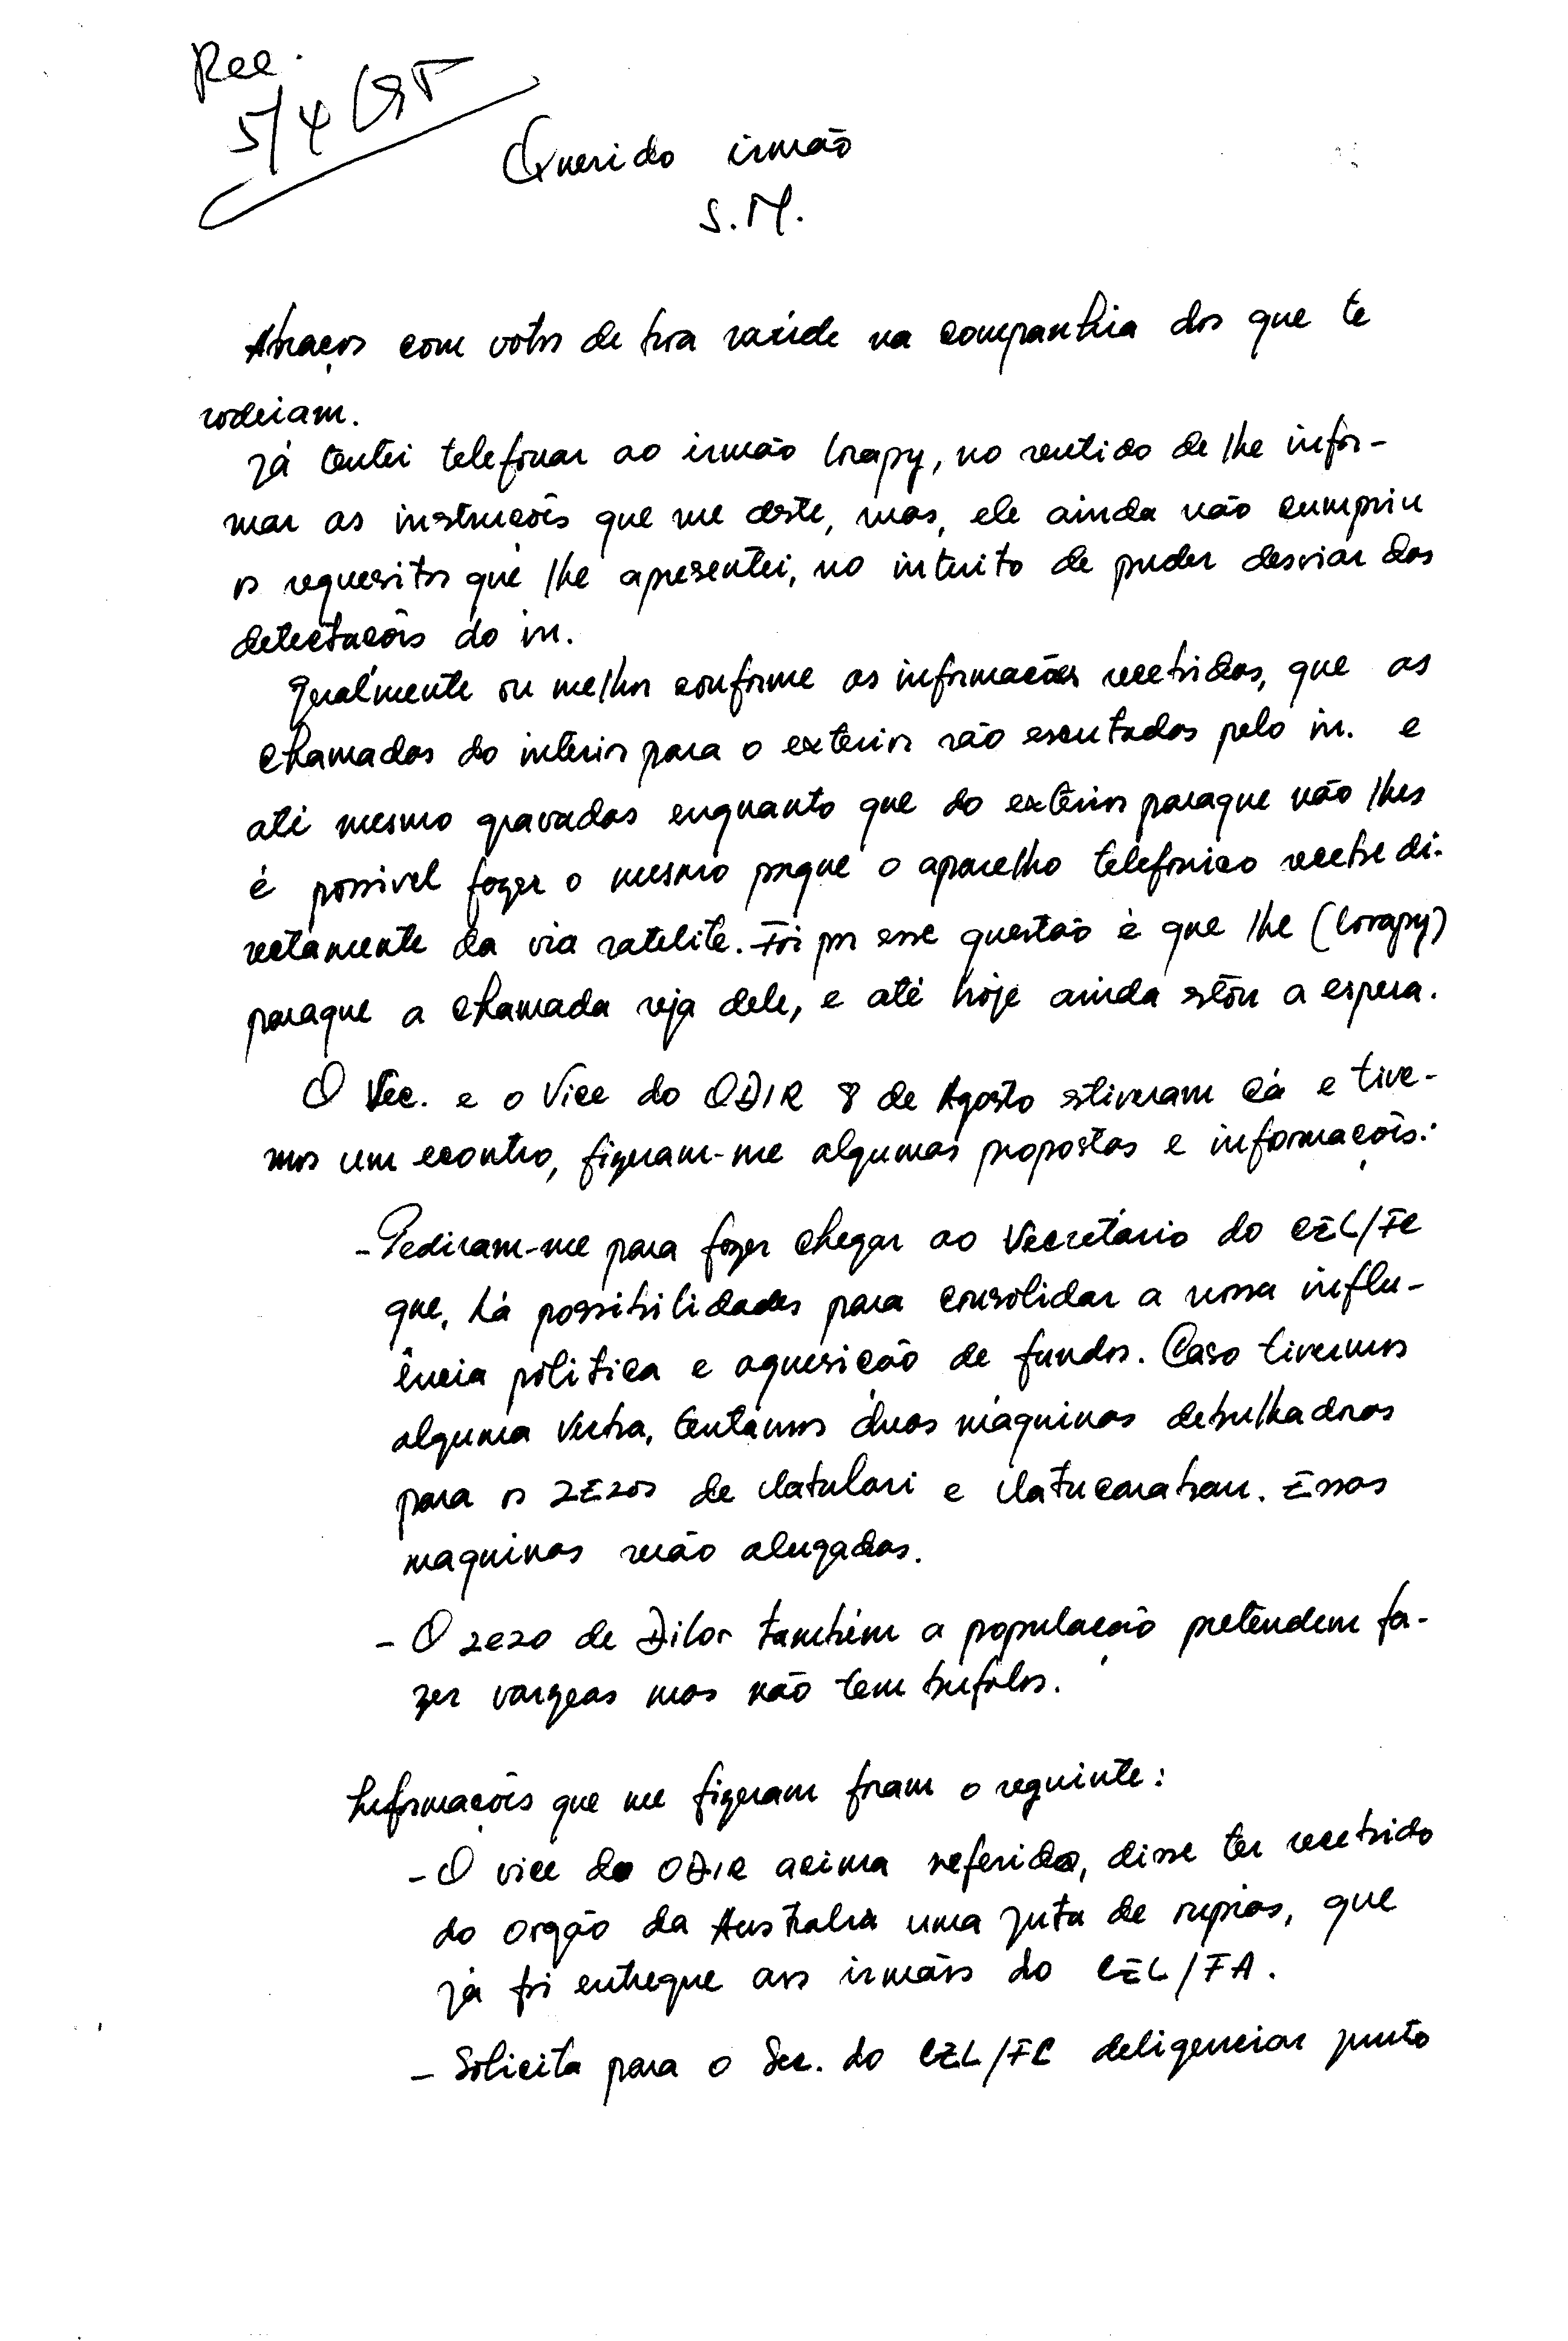 Rec.
5/4
Querido irmão
S.M.
Abraços com votos de boa saúde na companhia dos que te
rodeiam.
Já tentei telefonar ao irmão Lorapy, no sentido de lhe infor-
mar as instrucões que me deste, mas, ele ainda não cumpriu
os requesitos que lhe apresentei, no intuito de puder desviar das
detectacões do in.
Geralmente ou melhor conforme as informacões recebidas, que as
chamadas do interior para o exterior são escutadas pelo in. e
até mesmo gravadas enquanto que do exterior paraque não lhes
é possivel fazer o mesmo porque o aparelho telefonico recebe di-
rectamente da via satelite. Foi por esse questão é que lhe (Lorapy)
paraque a chamada seja dele, e até hoje ainda estou a espera.
O Sec. e o Vice do ODIR 8 de Agosto estiveram cá e tive-
mos um econtro, fizeram-me algumas propostas e informações:
- Pediram-me para fazer chegar ao Secretário do CEL/FC
que, há possibilidades para consolidar a nossa influ-
ência politica e aquesicão de fundos. Caso tivermos
alguma verba, tentamos duas máquinas debulhadoras
para os ZEZOS de Uatulari e Uatucarabau. Essas
maquinas serão alugadas.
- O zezo de Dilor também a população pretendem fa-
zer vargeas mas não tem búfalos.
Informações que me fizeram foram o seguinte:
- O vice do ODIR acima referido, disse ter recebido
do orgão da Australia uma juta de rupias, que
já foi entregue aos irmãos do CEL/FA.
- Solicita para o Sec. do CEL/FC deligenciar junto